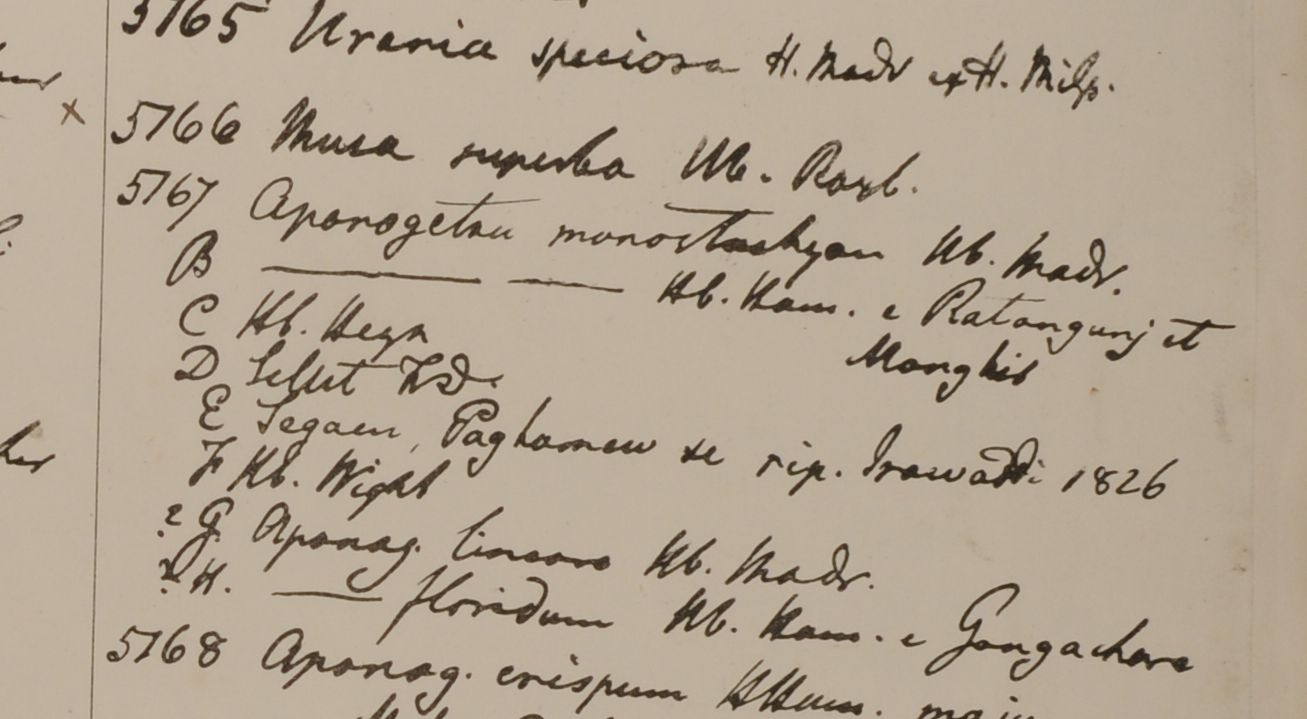 5765 Urania speciosa H. Madr ex H. Mdp.
5766 Musa superba Hb. Roxb.
5767 Aponogeton monostachyon Hb. Madr.
B ——— —— Hb. Ham. e Ratangunj et
Monghir
C Hb. Heyn
D Sillet F.D.
E Segaen, Paghamew se rip. Irawaddi 1826
F Hb. Wight
? G Aponog. lineare Hb. Madr.
? H. —— floridum Hb. Ham. e Gongachora
5768 Aponog. crispum HHam.